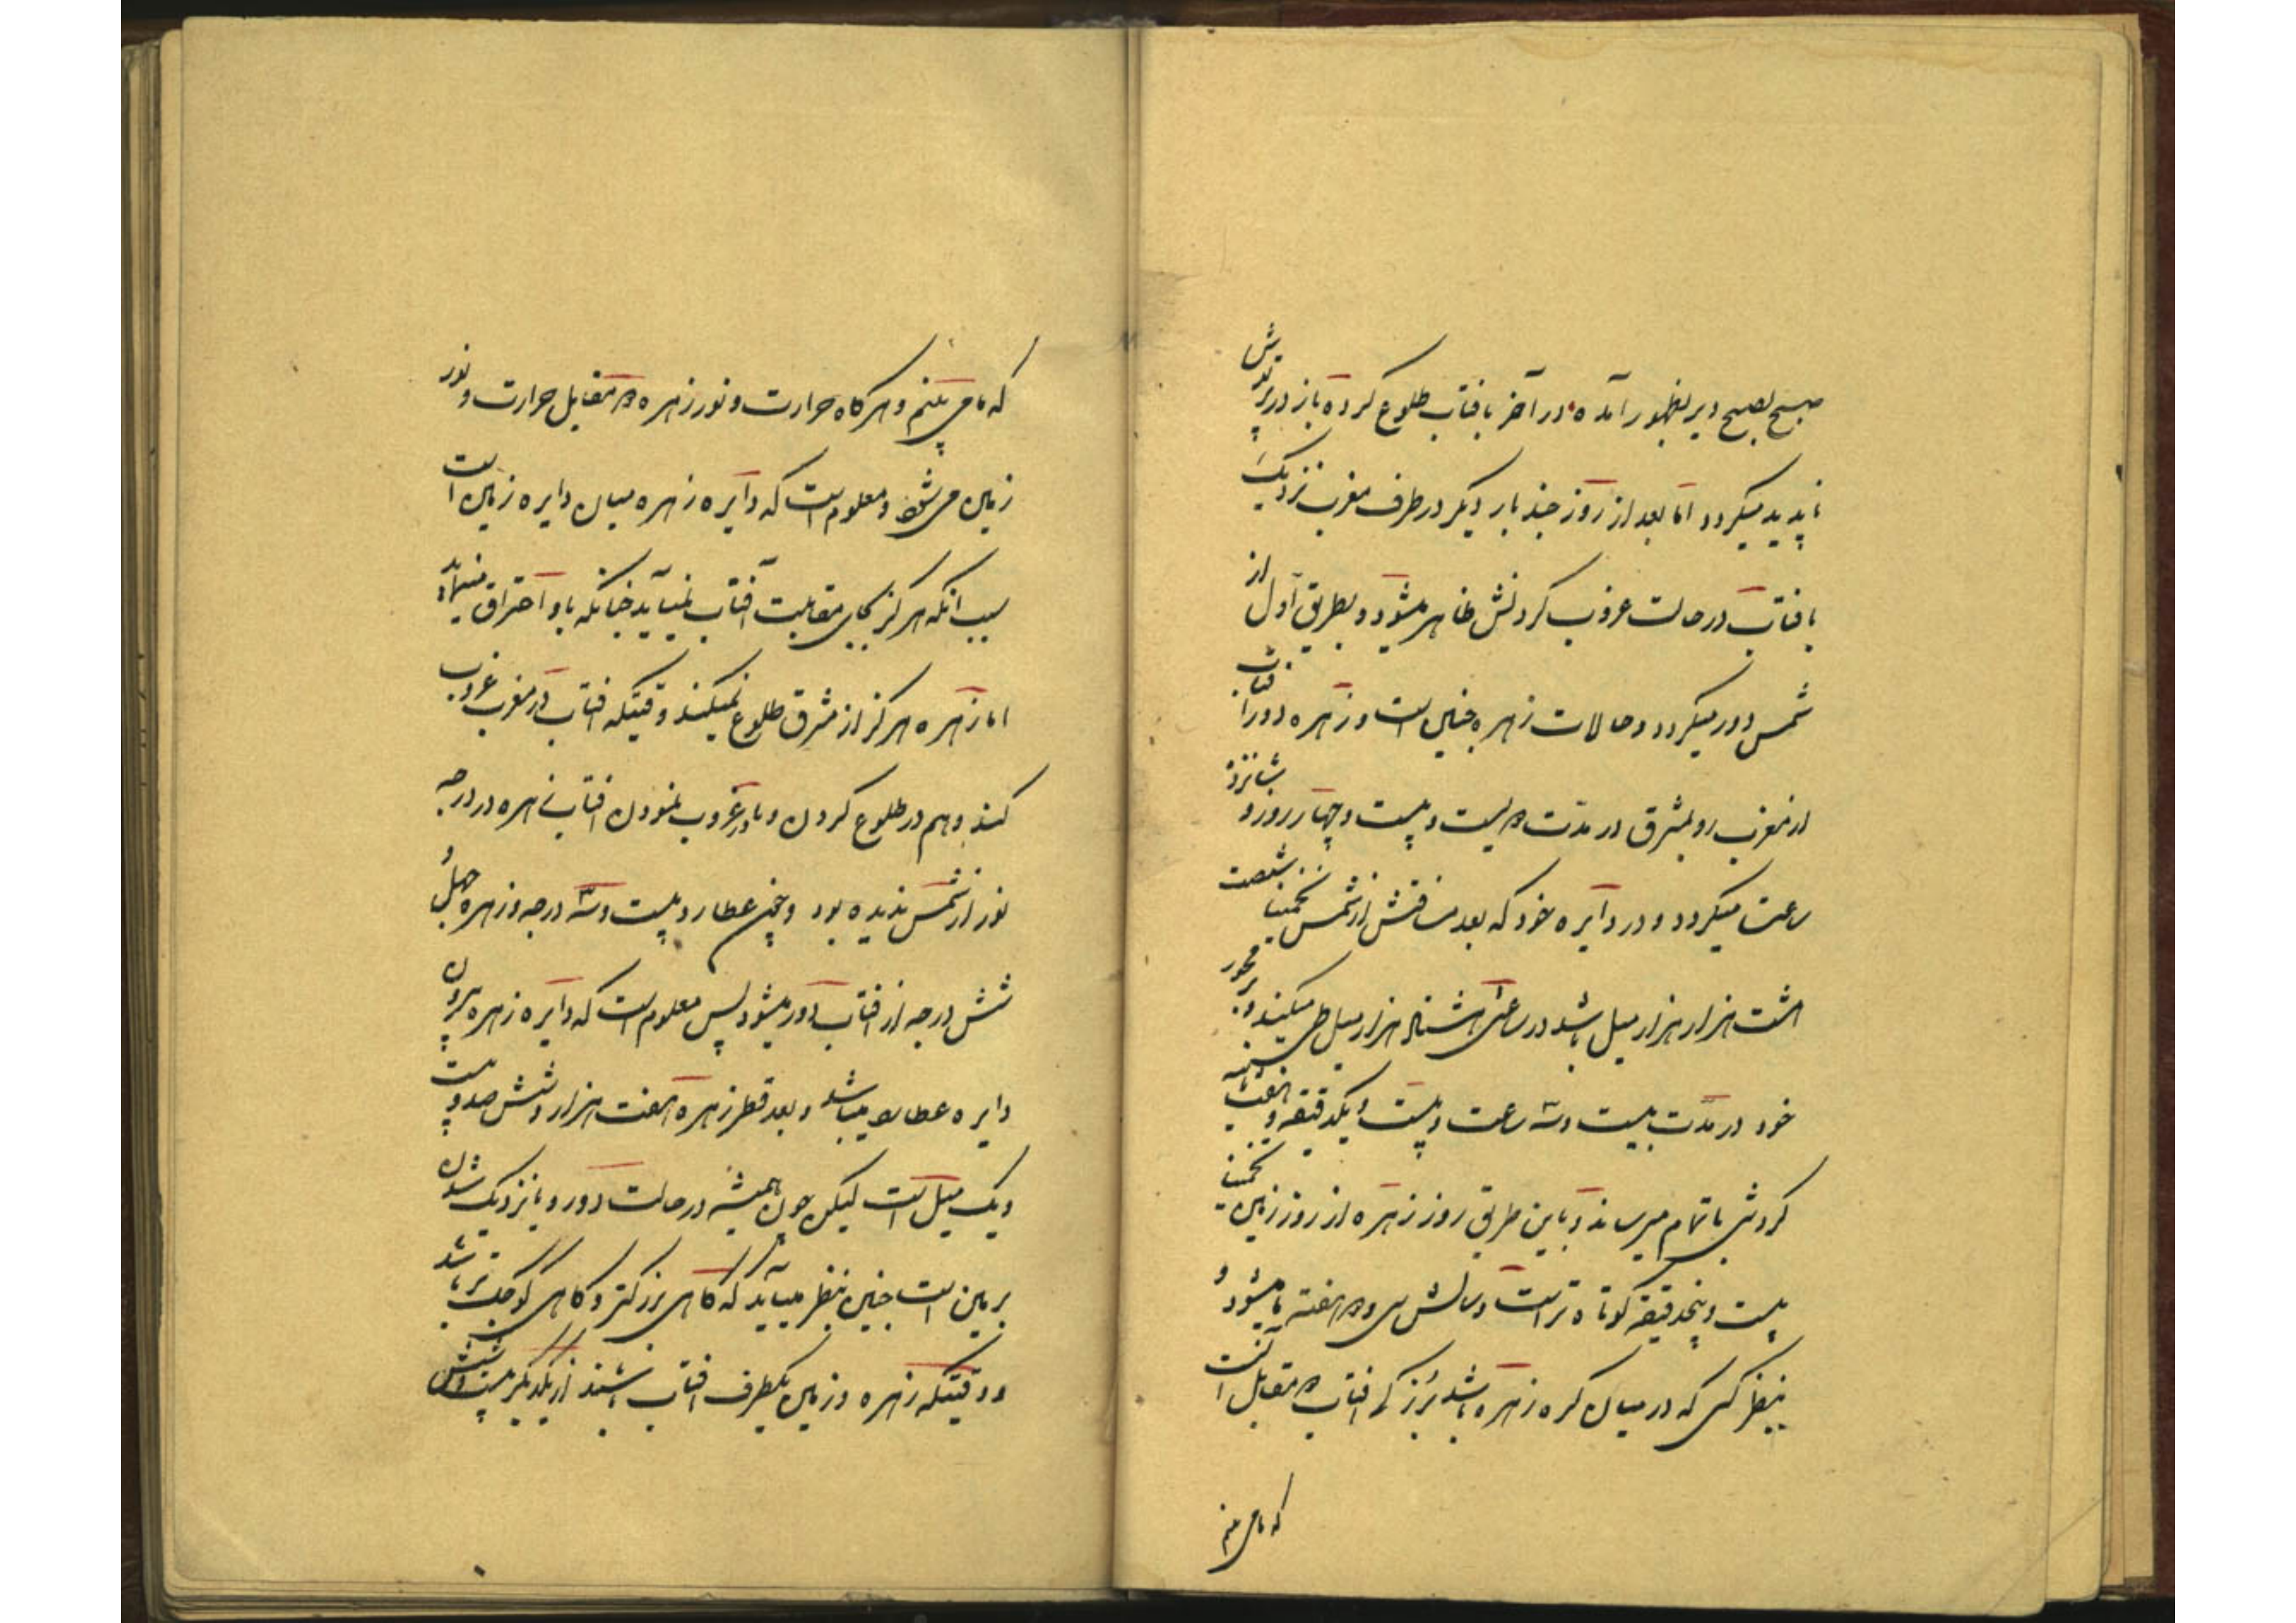 صبح بصبح دیر بظهور آمده در آخر بافتاب طلوع کرده باز در پرتوش
ناپدید میکردد اما بعد از روز چند بار دیکر در طرف مغرب نزدیک
بافتاب در حالت غروب کردنش ظاهر میشود و بطریق اول از
شمس دور میکردد و حالات زهره چنین است و زهره دور افتاب
از مغرب رو بمشرق در مدت دو لیست و بیست و چهار روز و شانزده
ساعت میکردد و در دایره خود که بعد مسافتش از شمس تخمینا شصت
هشت هزار هزار میل باشد در ساعتی هشتاد هزار میل طی میکند و بر محور
خود در مدت بیست و سه ساعت و بیست و یکدقیقه و
کردش باتمام میرساند و باین طریق روز زهره از روز زمین تخمینا
بیست و پنجدقیقه کوتاه تر است و سالش سی و دو هفته ما میشود و
بنظر کسی که در میان کره زهره باشد بزرکی افتاب دو مقابل آنست
که ما می بینم
که ما می بینم و هرکاه حرارت و نور زهره دو مقابل حرارت و نور
زمین می شود و معلوم است که دایره زهره میان دایره زمین است
سبب انکه هرکز بجای مقابلت آفتاب نمیآید چنانکه با و احتراق
اما زهره هرکز از مشرق طلوع نمیکند وقتیکه افتاب در مغرب غروب
کند و هم در طلوع کردن و یا در غروب نمودن افتاب زهره در درجه
نور از شمس ندیده بود و چون عطارد بیست و سه درجه و زهره چهل و
شش درجه از افتاب دور میشود پس معلوم است که دایره زهره بیرون
دایره عطارد میباشد و بعد قطر زهره هفت هزار و شش صد و بیست
و یک میل است لیکن چون همیشه در حالت دور و یا نزدیک شدن
بزمین است چنین بنظر میآید که کاهی بزرکتر و کاهی کوچک تر باشد
و وقتیکه زهره و زمین بیکطرف افتاب باشند از یکدیکر بیست و شش